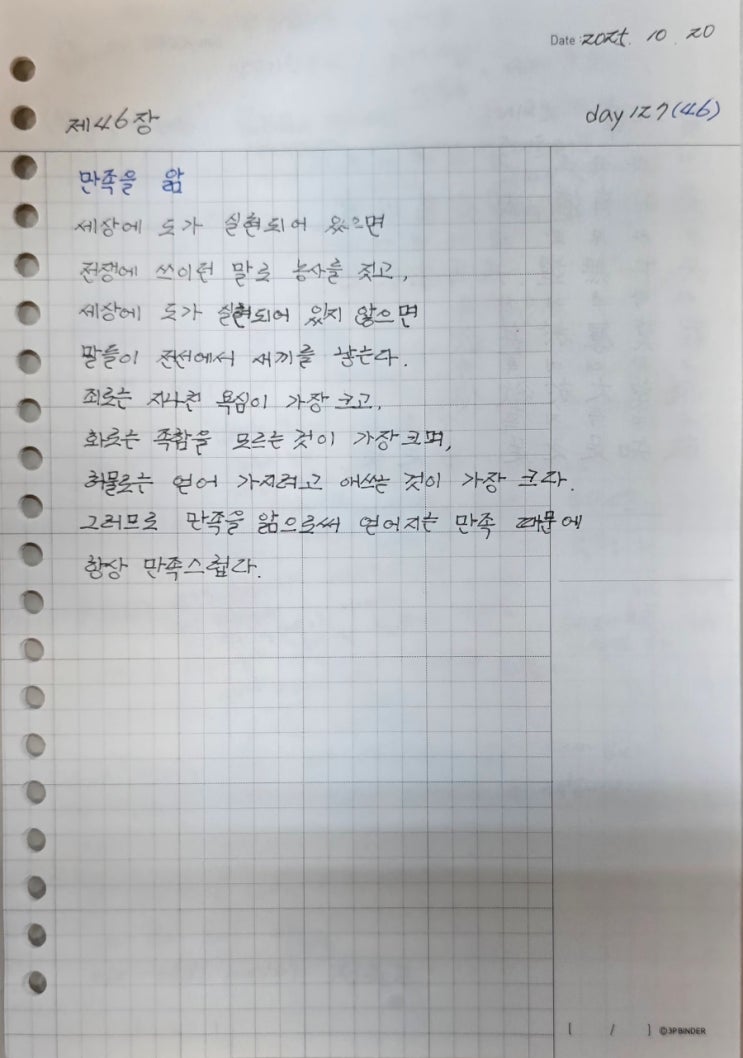 Date : 2025. 10. 20
제46장
day 127(46)
만족을 앎
세상에 도가 실현되어 있으면
전쟁에 쓰이던 말로 농사를 짓고,
세상에 도가 실현되어 있지 않으면
말들이 전선에서 새끼를 낳는다.
죄로는 지나친 욕심이 가장 크고,
화로는 족함을 모르는 것이 가장 크며,
허물로는 얻어 가지려고 애쓰는 것이 가장 크다.
그러므로 만족을 앎으로써 얻어지는 만족 때문에
항상 만족스럽다.
[ / ] ©3P BINDER